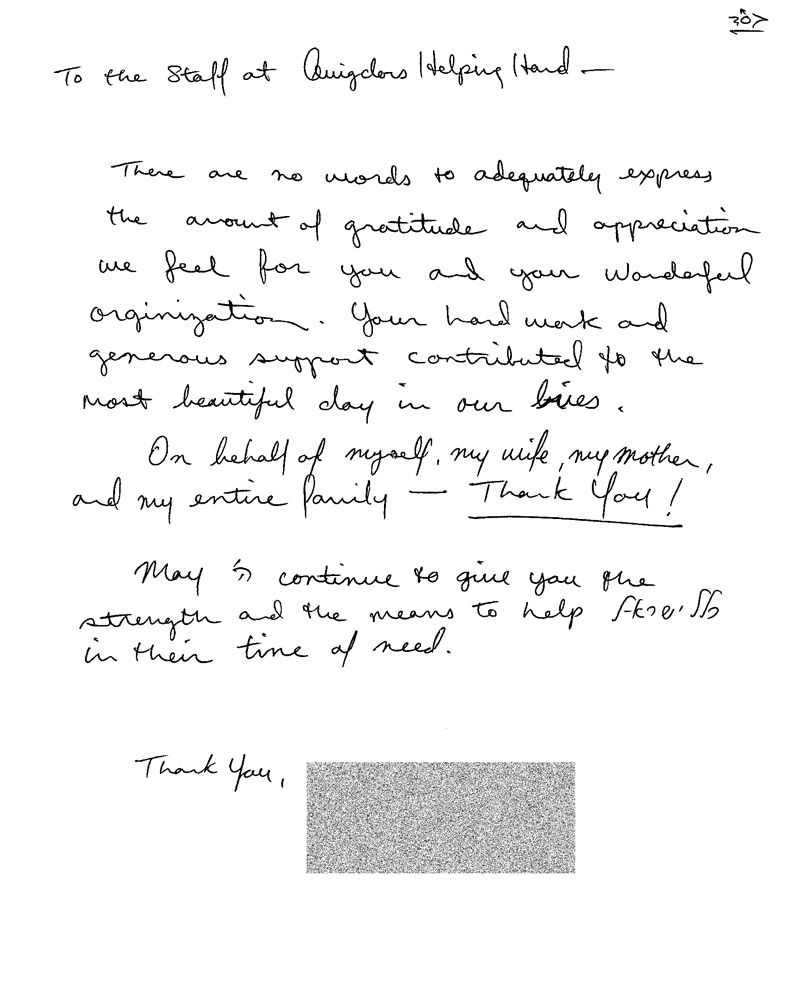 בס"ד
To the Staff at Avigdors Helping Hand —
There are no words to adequately express
the amount of gratitude and appreciation
we feel for you and your wonderful
orginization. Your hard work and
generous support contributed to the
most beautiful day in our lives.
On behalf of myself, my wife, my mother,
and my entire family — Thank You!
May ה' continue to give you the
strength and the means to help כלל ישראל
in their time of need.
Thank You,